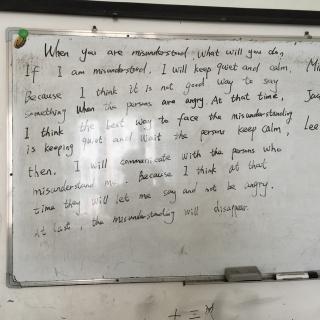 When you are misunderstood, What will you do,
If I am misunderstood. I will keep quiet and calm.
Because I think it is not good way to say
something when the persons are angry. At that time,
I think the best way to face the misunderstanding
is keeping quiet and wait the persons keep calm,
then. I will communicate with the persons who
misunderstand me. Because I think at that
time they will let me say and not be angry.
At last, the misunderstanding will disappear.
Lee
十三